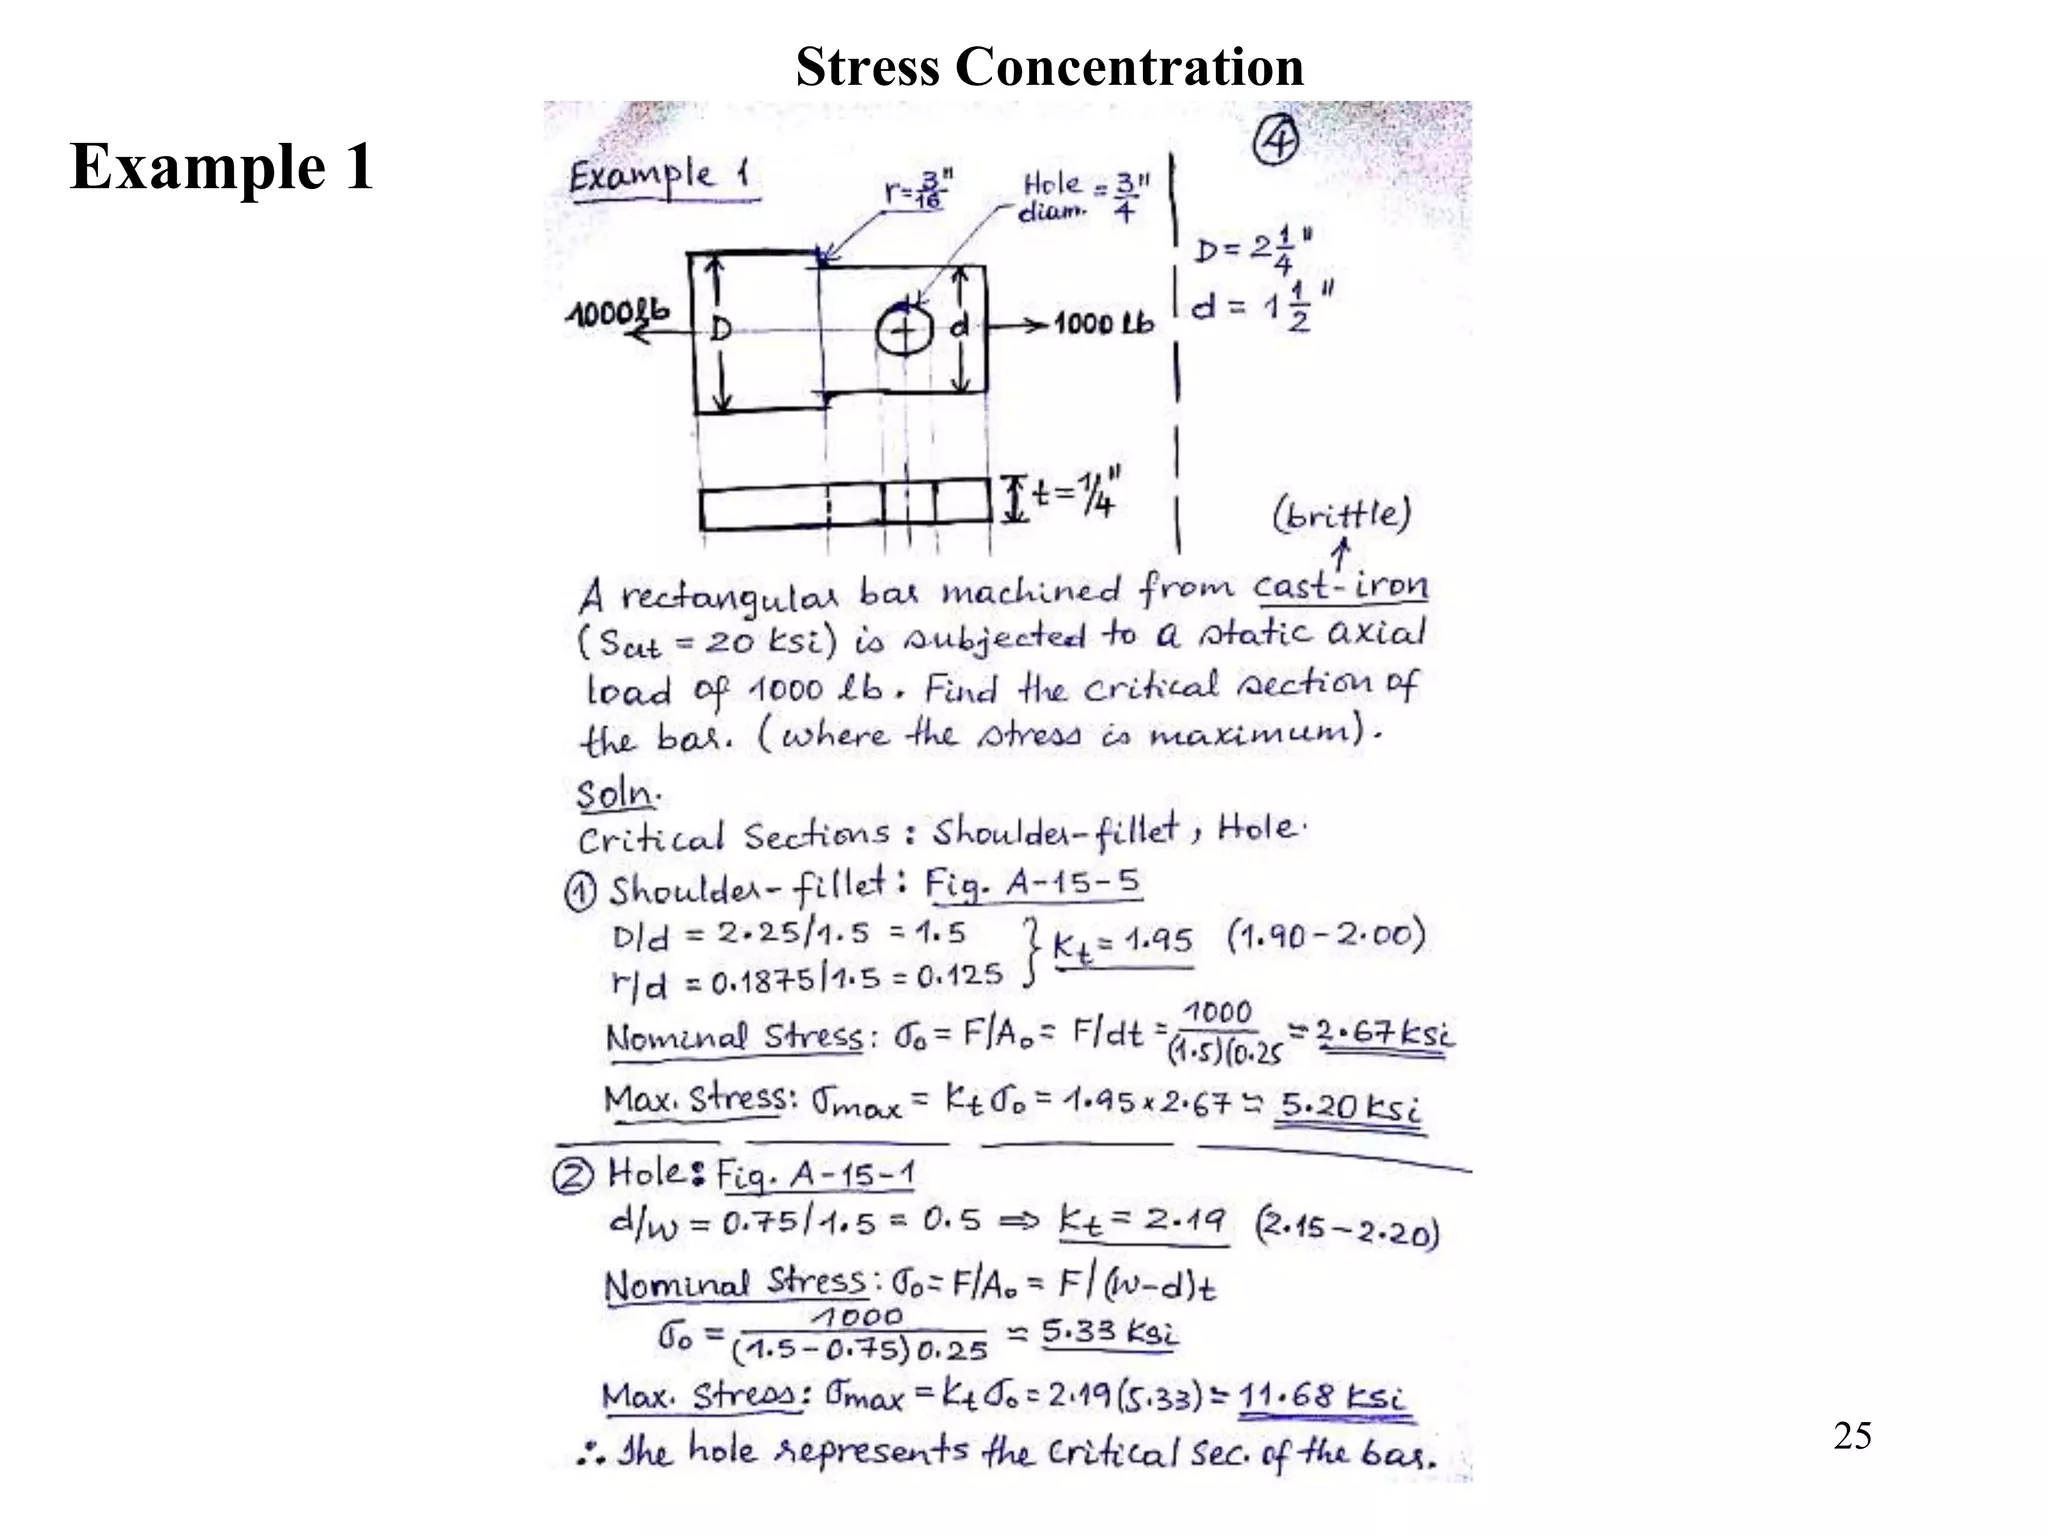 Stress Concentration
Example 1
④
Example 1
r=3/16"
Hole diam. = 3/4"
D = 2 1/4"
d = 1 1/2"
1000 lb
D
d
1000 lb
t = 1/4"
(brittle)
A rectangular bar machined from cast-iron
(Sut = 20 ksi) is subjected to a static axial
load of 1000 lb. Find the critical section of
the bar. (where the stress is maximum).
Soln.
Critical Sections: Shoulder-fillet, Hole.
① Shoulder-fillet: Fig. A-15-5
D/d = 2.25/1.5 = 1.5
r/d = 0.1875/1.5 = 0.125 } Kt = 1.95 (1.90-2.00)
Nominal Stress: σo = F/Ao = F/dt = 1000/(1.5)(0.25 = 2.67 ksi
Max. Stress: σmax = Kt σo = 1.95 x 2.67 ≃ 5.20 ksi
② Hole: Fig. A-15-1
d/w = 0.75/1.5 = 0.5 ⇒ Kt = 2.19 (2.15-2.20)
Nominal Stress: σo = F/Ao = F/(w-d)t
σo = 1000/(1.5-0.75)0.25 ≃ 5.33 ksi
Max. Stress: σmax = Kt σo = 2.19(5.33) ≃ 11.68 ksi
∴ The hole represents the critical sec. of the bar.
25